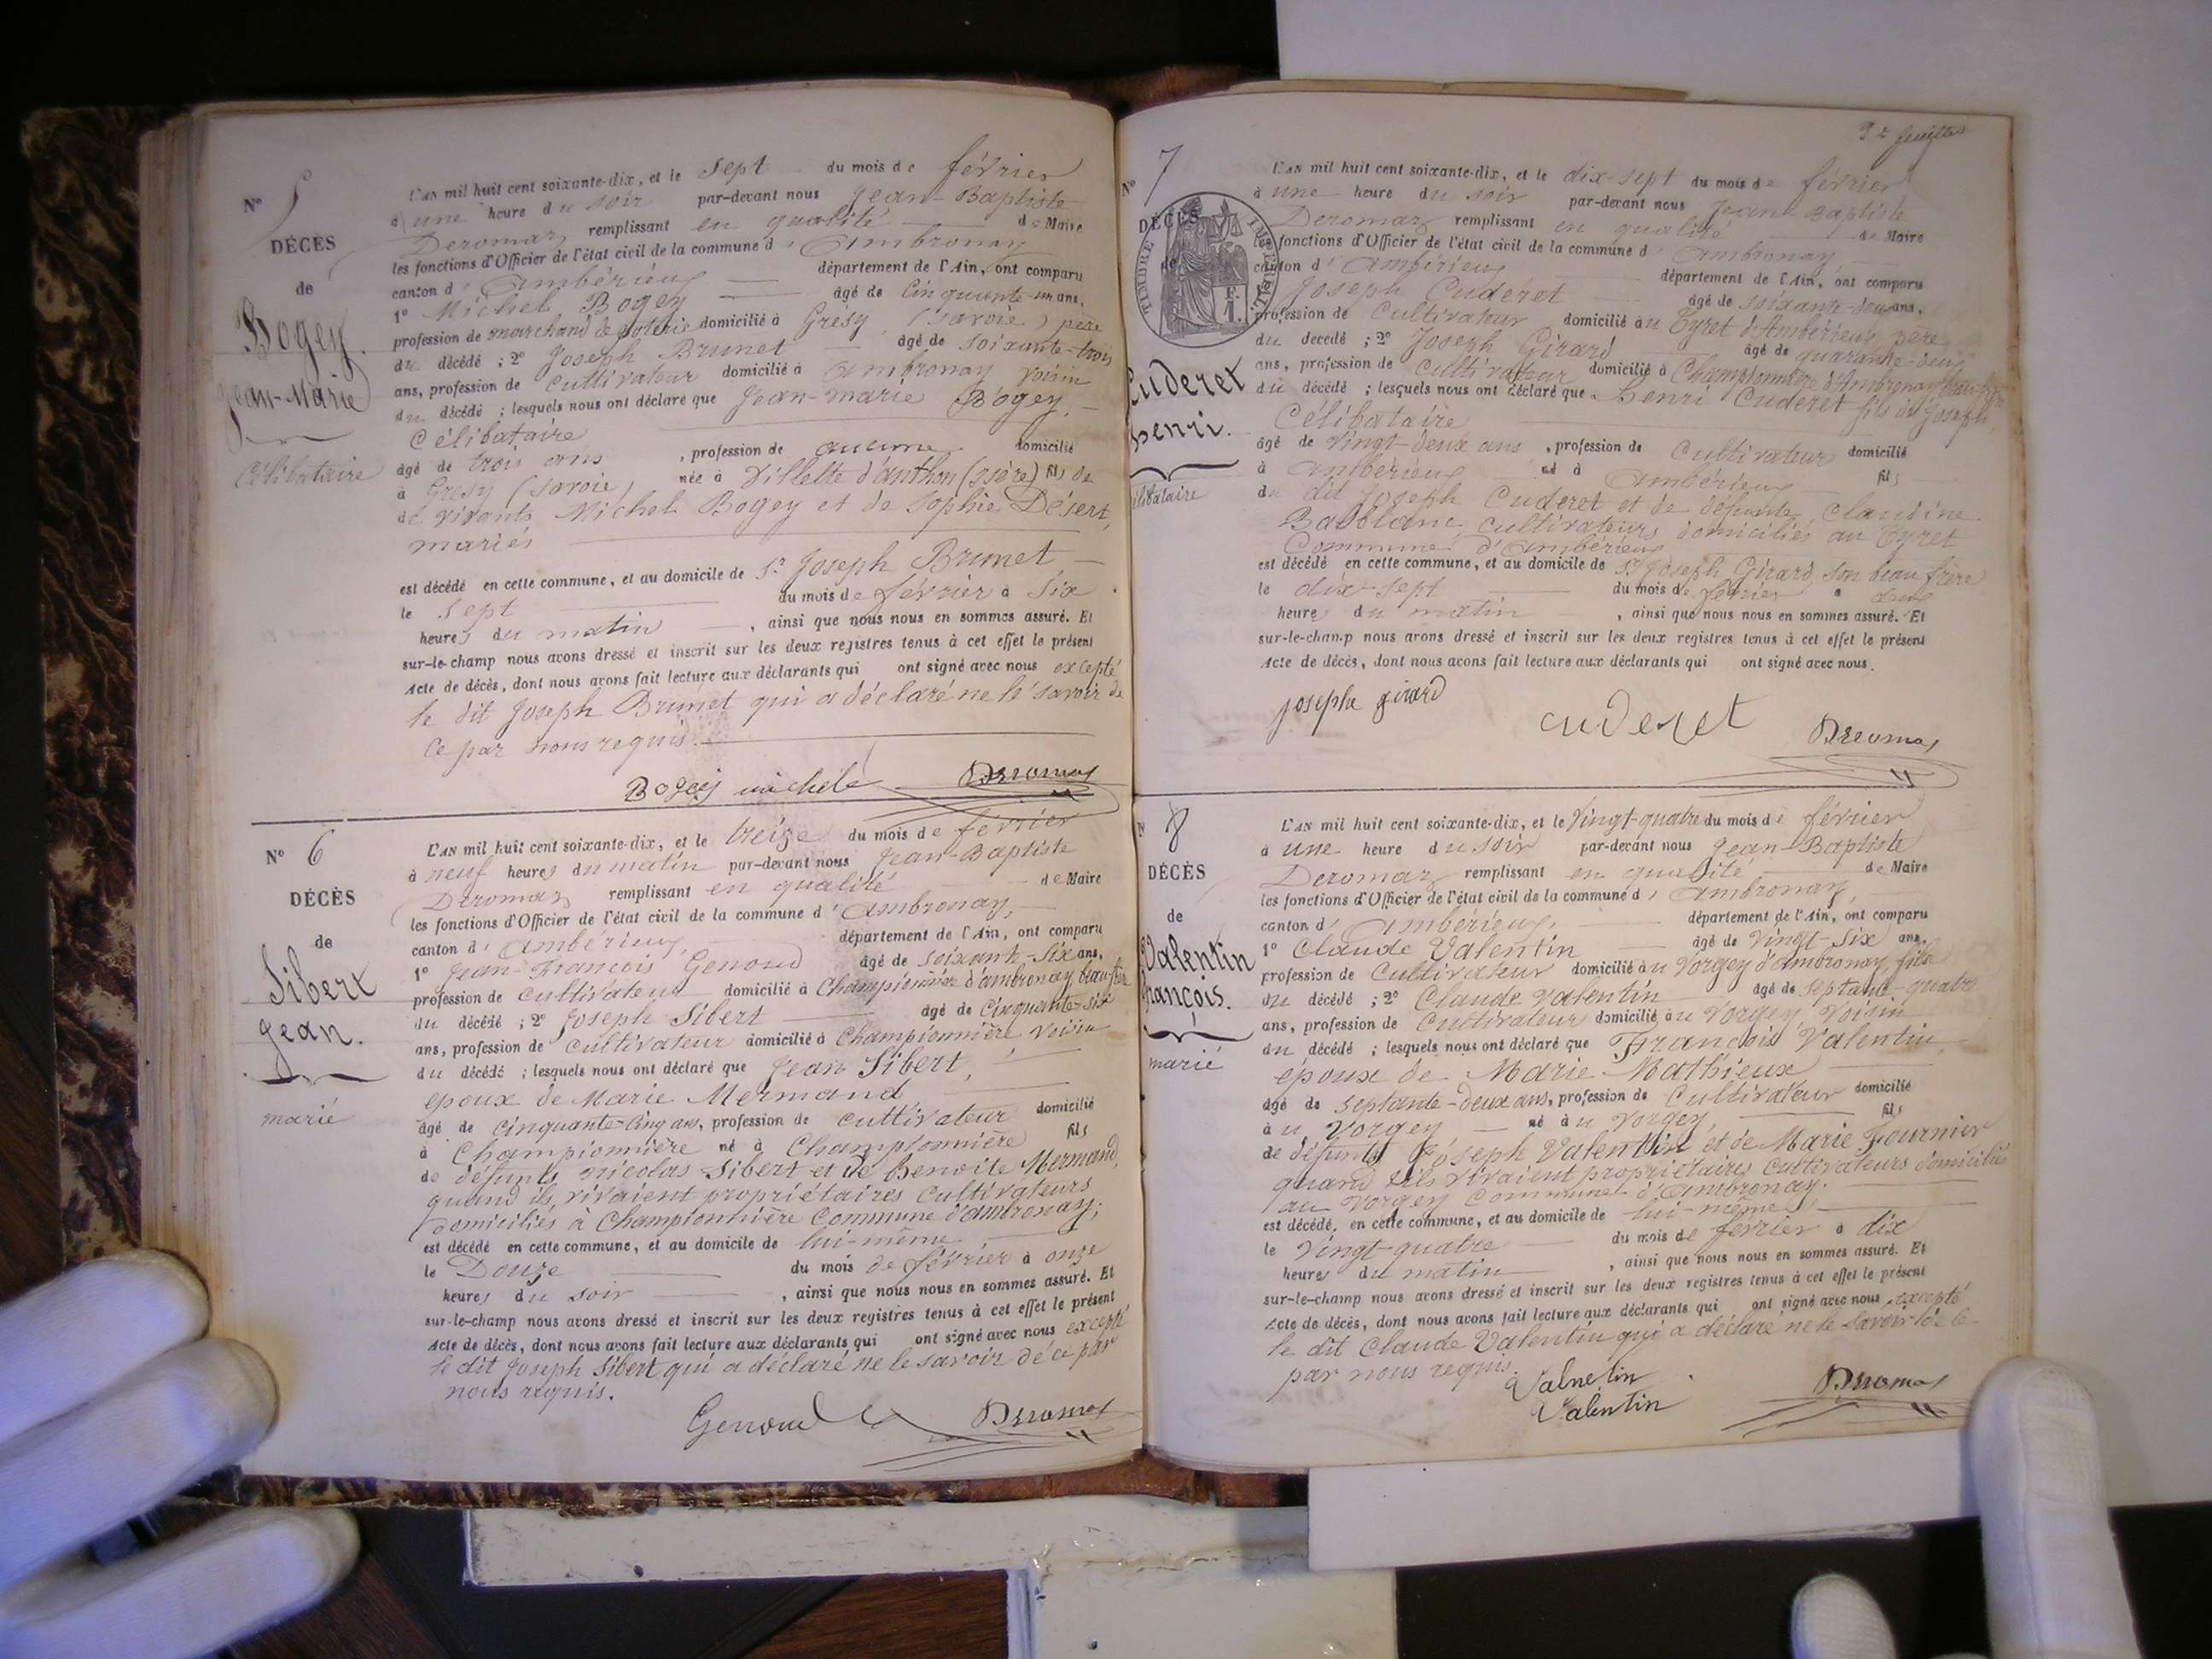 N° 5
DÉCÈS
de
Bogey.
Jean-Marie
Célibataire
L'AN mil huit cent soixante-dix, et le sept du mois de février
à une heure du soir par-devant nous Jean-Baptiste
Deromaz remplissant en qualité de Maire
les fonctions d'Officier de l'état civil de la commune d'Ambronay
canton d'Ambérieux département de l'Ain, ont comparu
1° Michel Bogey âgé de Cinquante-un ans,
profession de marchand de poterie domicilié à Grésy (Savoie) père
du décédé ; 2° Joseph Brunet âgé de soixante-trois
ans, profession de cultivateur domicilié à Ambronay voisin
du décédé ; lesquels nous ont déclaré que Jean-Marie Bogey,
Célibataire
âgé de trois ans, profession de aucune domicilié
à Grésy (Savoie) née à Villette d'anthon (Isère) fils de
de vivants Michel Bogey et de Sophie Désert,
mariés
est décédé en cette commune, et au domicile de Sr Joseph Brunet
le sept du mois de février à six
heures du matin, ainsi que nous nous en sommes assuré. Et
sur-le-champ nous avons dressé et inscrit sur les deux registres tenus à cet effet le présent
Acte de décès, dont nous avons fait lecture aux déclarants qui ont signé avec nous excepté
le dit Joseph Brunet qui a déclaré ne le savoir de
ce par nous requis.
Bogey michel Deromaz
N° 6
DÉCÈS
de
Sibert
Jean.
marié
L'AN mil huit cent soixante-dix, et le treize du mois de février
à neuf heures du matin par-devant nous Jean-Baptiste
Deromaz remplissant en qualité de Maire
les fonctions d'Officier de l'état civil de la commune d'Ambronay,
canton d'Ambérieux département de l'Ain, ont comparu
1° Jean-François Genoud âgé de soixante-six ans,
profession de cultivateur domicilié à Championnière d'ambronay beau-frère
du décédé ; 2° Joseph Sibert âgé de cinquante-six
ans, profession de cultivateur domicilié à Championnière voisin
du décédé ; lesquels nous ont déclaré que Jean Sibert,
époux de Marie Mermand
âgé de cinquante-cinq ans, profession de cultivateur domicilié
à Championnière né à Championnière fils
de défunts Nicolas Sibert et de Benoite Mermand,
quand ils vivaient propriétaires cultivateurs
domiciliés à Championnière Commune d'ambronay;
est décédé en cette commune, et au domicile de lui-même
le Douze du mois de février à onze
heures du soir, ainsi que nous nous en sommes assuré. Et
sur-le-champ nous avons dressé et inscrit sur les deux registres tenus à cet effet le présent
Acte de décès, dont nous avons fait lecture aux déclarants qui ont signé avec nous excepté
le dit Joseph Sibert qui a déclaré ne le savoir de ce par
nous requis.
Genoud Deromaz
feuillet
N° 7
DÉCÈS
de
TIMBRE IMPÉRIAL
Cuderet
henri.
célibataire
L'AN mil huit cent soixante-dix, et le dix-sept du mois de février
à une heure du soir par-devant nous Jean-Baptiste
Deromaz remplissant en qualité de Maire
les fonctions d'Officier de l'état civil de la commune d'Ambronay
canton d'Ambérieux département de l'Ain, ont comparu
Joseph Cuderet âgé de soixante-deux ans,
profession de Cultivateur domicilié au Tyret d'Ambérieux père
du décédé ; 2° Joseph Girard âgé de quarante-deux
ans, profession de cultivateur domicilié à Championnière d'Ambronay beau-frère
du décédé ; lesquels nous ont déclaré que henri Cuderet fils du Joseph,
Célibataire
âgé de vingt-deux ans, profession de Cultivateur domicilié
à Ambérieux né à Ambérieux fils
du dit Joseph Cuderet et de défunte Claudine
Babolanc, cultivateurs domiciliés au Tyret
Commune d'Ambérieux
est décédé en cette commune, et au domicile de Sr Joseph Girard, son beau frère
le dix-sept du mois de février à deux
heures du matin, ainsi que nous nous en sommes assuré. Et
sur-le-champ nous avons dressé et inscrit sur les deux registres tenus à cet effet le présent
Acte de décès, dont nous avons fait lecture aux déclarants qui ont signé avec nous.
Josephe girard cuderet Deromaz
N° 8
DÉCÈS
de
Valentin
François.
marié
L'AN mil huit cent soixante-dix, et le vingt-quatre du mois de février
à une heure du soir par-devant nous Jean-Baptiste
Deromaz remplissant en qualité de Maire
les fonctions d'Officier de l'état civil de la commune d'Ambronay,
canton d'Ambérieux, département de l'Ain, ont comparu
1° Claude Valentin âgé de vingt-six ans,
profession de Cultivateur domicilié au Vorgey d'ambronay, fils
du décédé ; 2° Claude Valentin âgé de septante-quatre
ans, profession de Cultivateur domicilié au Vorgey voisin
du décédé ; lesquels nous ont déclaré que François Valentin,
époux de Marie Mathieux
âgé de septante-deux ans, profession de Cultivateur domicilié
au Vorgey né au Vorgey fils
de défunts Joseph Valentin et de Marie Fournier
quand ils vivaient propriétaires cultivateurs domiciliés
au Vorgey Commune d'Ambronay.
est décédé, en cette commune, et au domicile de lui-même
le Vingt-quatre du mois de février à dix
heures du matin, ainsi que nous nous en sommes assuré. Et
sur-le-champ nous avons dressé et inscrit sur les deux registres tenus à cet effet le présent
Acte de décès, dont nous avons fait lecture aux déclarants qui ont signé avec nous excepté
le dit Claude Valentin qui a déclaré ne le savoir de ce
par nous requis.
Valnetin
Valentin Deromaz